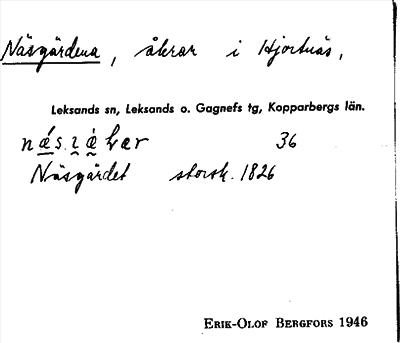 Näsgärdena, åkrar i Hjortnäs,
Leksands sn, Leksands o. Gagnefs tg, Kopparbergs län.
36
Näsgärdet storsk. 1826
ERIK-OLOF BERGFORS 1946